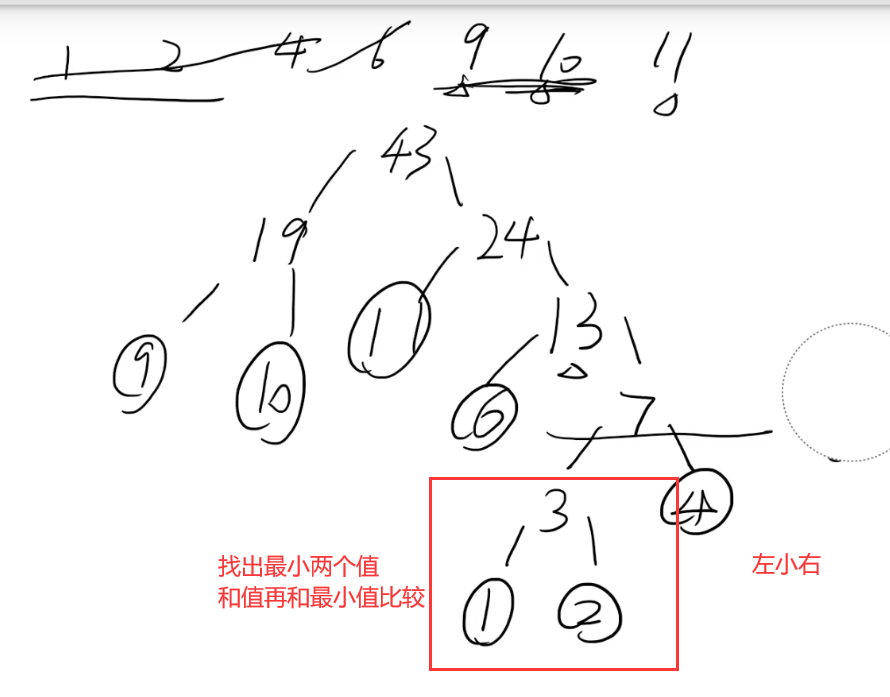 1 2 4 6 9 10 11
43
19 24
9 10 11 13
6 7
3 4
找出最小两个值 左小右
和值再和最小值比较
1 2